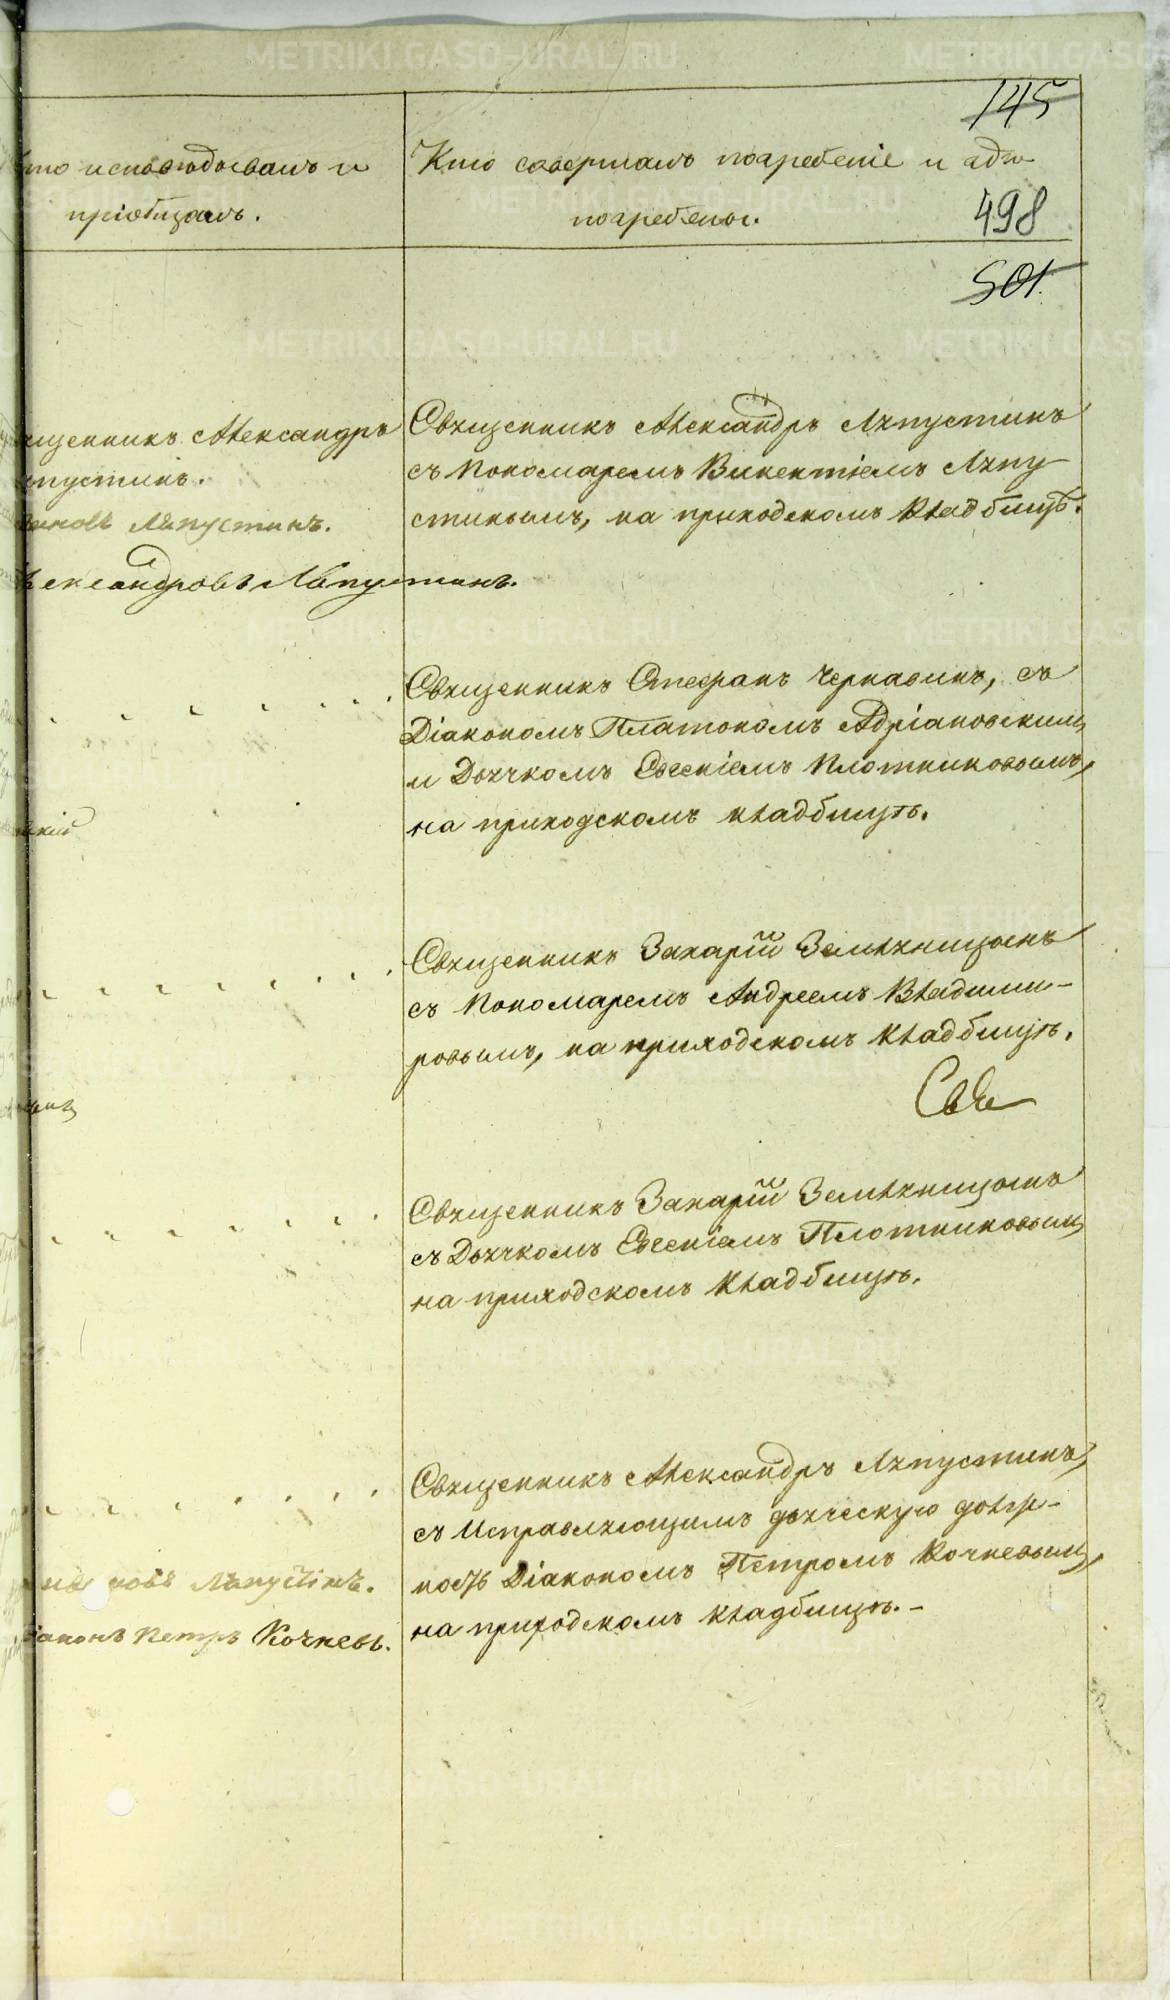 145
то исповѣдывалъ и
пріобщалъ.
Кто совершалъ погребеніе и гдѣ
погребены.
498
501.
щенникъ Александръ
пустинъ.
иновъ Ляпустинъ.
лександровъ Ляпустинъ.
Священникъ Александръ Ляпустинъ
съ Пономаремъ Викентіемъ Ляпу
стинымъ, на приходскомъ кладбищѣ.
Священникъ Стефанъ Чернавинъ, съ
Діакономъ Платономъ Адріановскимъ
и Дьячкомъ Евгеніемъ Плотниковымъ,
на приходскомъ кладбищѣ.
скій
Священникъ Захарій Земляницынъ
съ Пономаремъ Андреемъ Владими-
ровымъ, на приходскомъ кладбищѣ.
Священникъ Захарій Земляницынъ
съ Дьячкомъ Евгеніемъ Плотниковымъ
на приходскомъ кладбищѣ.
Священникъ Александръ Ляпустинъ,
съ Исправляющимъ дьяческую долж-
ность Діакономъ Петромъ Кочневымъ,
на приходскомъ кладбищѣ.-
новъ Ляпустинъ.
іаконъ Петръ Кочневъ.
METRIKI.GASO-URAL.RU